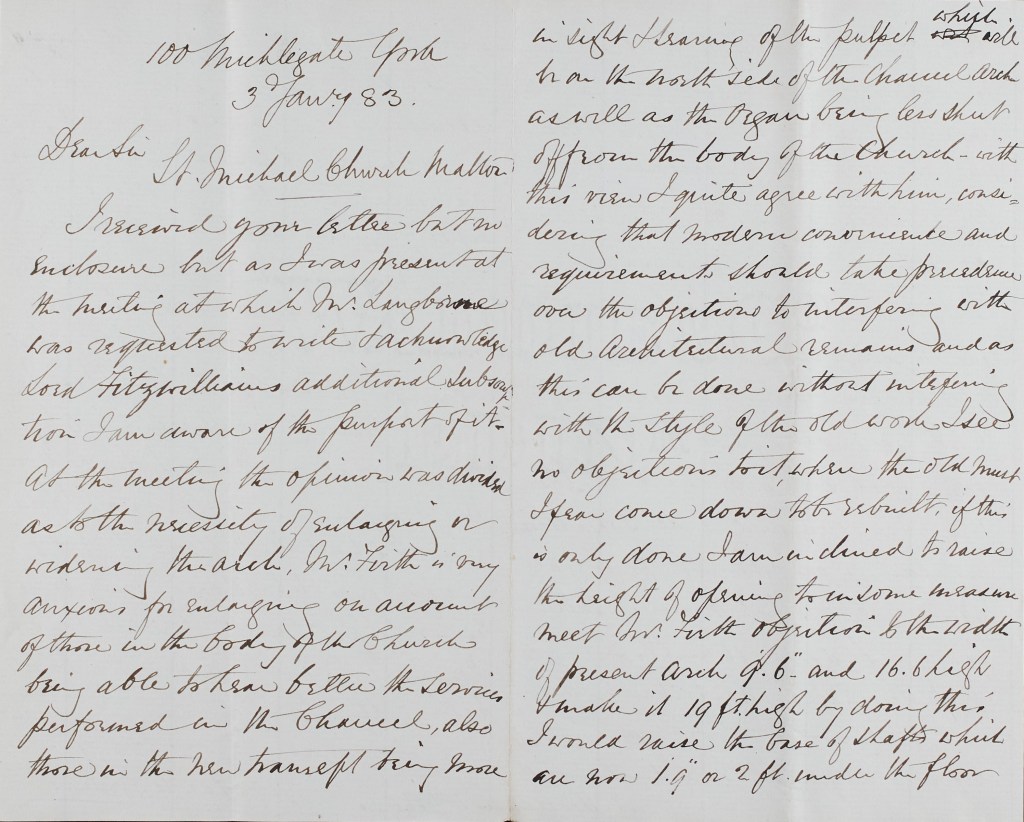 100 Micklegate York
3 Jany 83.
Dear Sir
St. Michael Church Malton
I received your letter but no
enclosure but as I was present at
the meeting at which Mr. Langborne
was requested to write & acknowledge
Lord Fitzwilliams additional subscrip
tion I am aware of the purport of it-
At the meeting the opinion was divided
as to the necessity of enlarging or
widening the arch, Mr. Firth is very
anxious for enlarging on account
of those in the body of the Church
being able to hear better the services
performed in the Chancel, also
those in the new transept being more
in sight & hearing of the pulpit which will
be on the north side of the Chancel Arch
as well as the Organ being less shut
off from the body of the Church - with
this view I quite agree with him, consi=
dering that modern convenience and
requirements should take precedence
over the objections to interfering with
old Architectural remains and as
this can be done without interfering
with the style of the old work I see
no objections to it, where the old must
I fear come down to be rebuilt, if this
is only done I am inclined to raise
the height of opening to in some measure
meet Mr. Firth objection to the width
of present arch 9'.6" and 16.6 high
& make it 19 ft. high by doing this
I would raise the base of shafts which
are now 1'.9" or 2 ft. under the floor